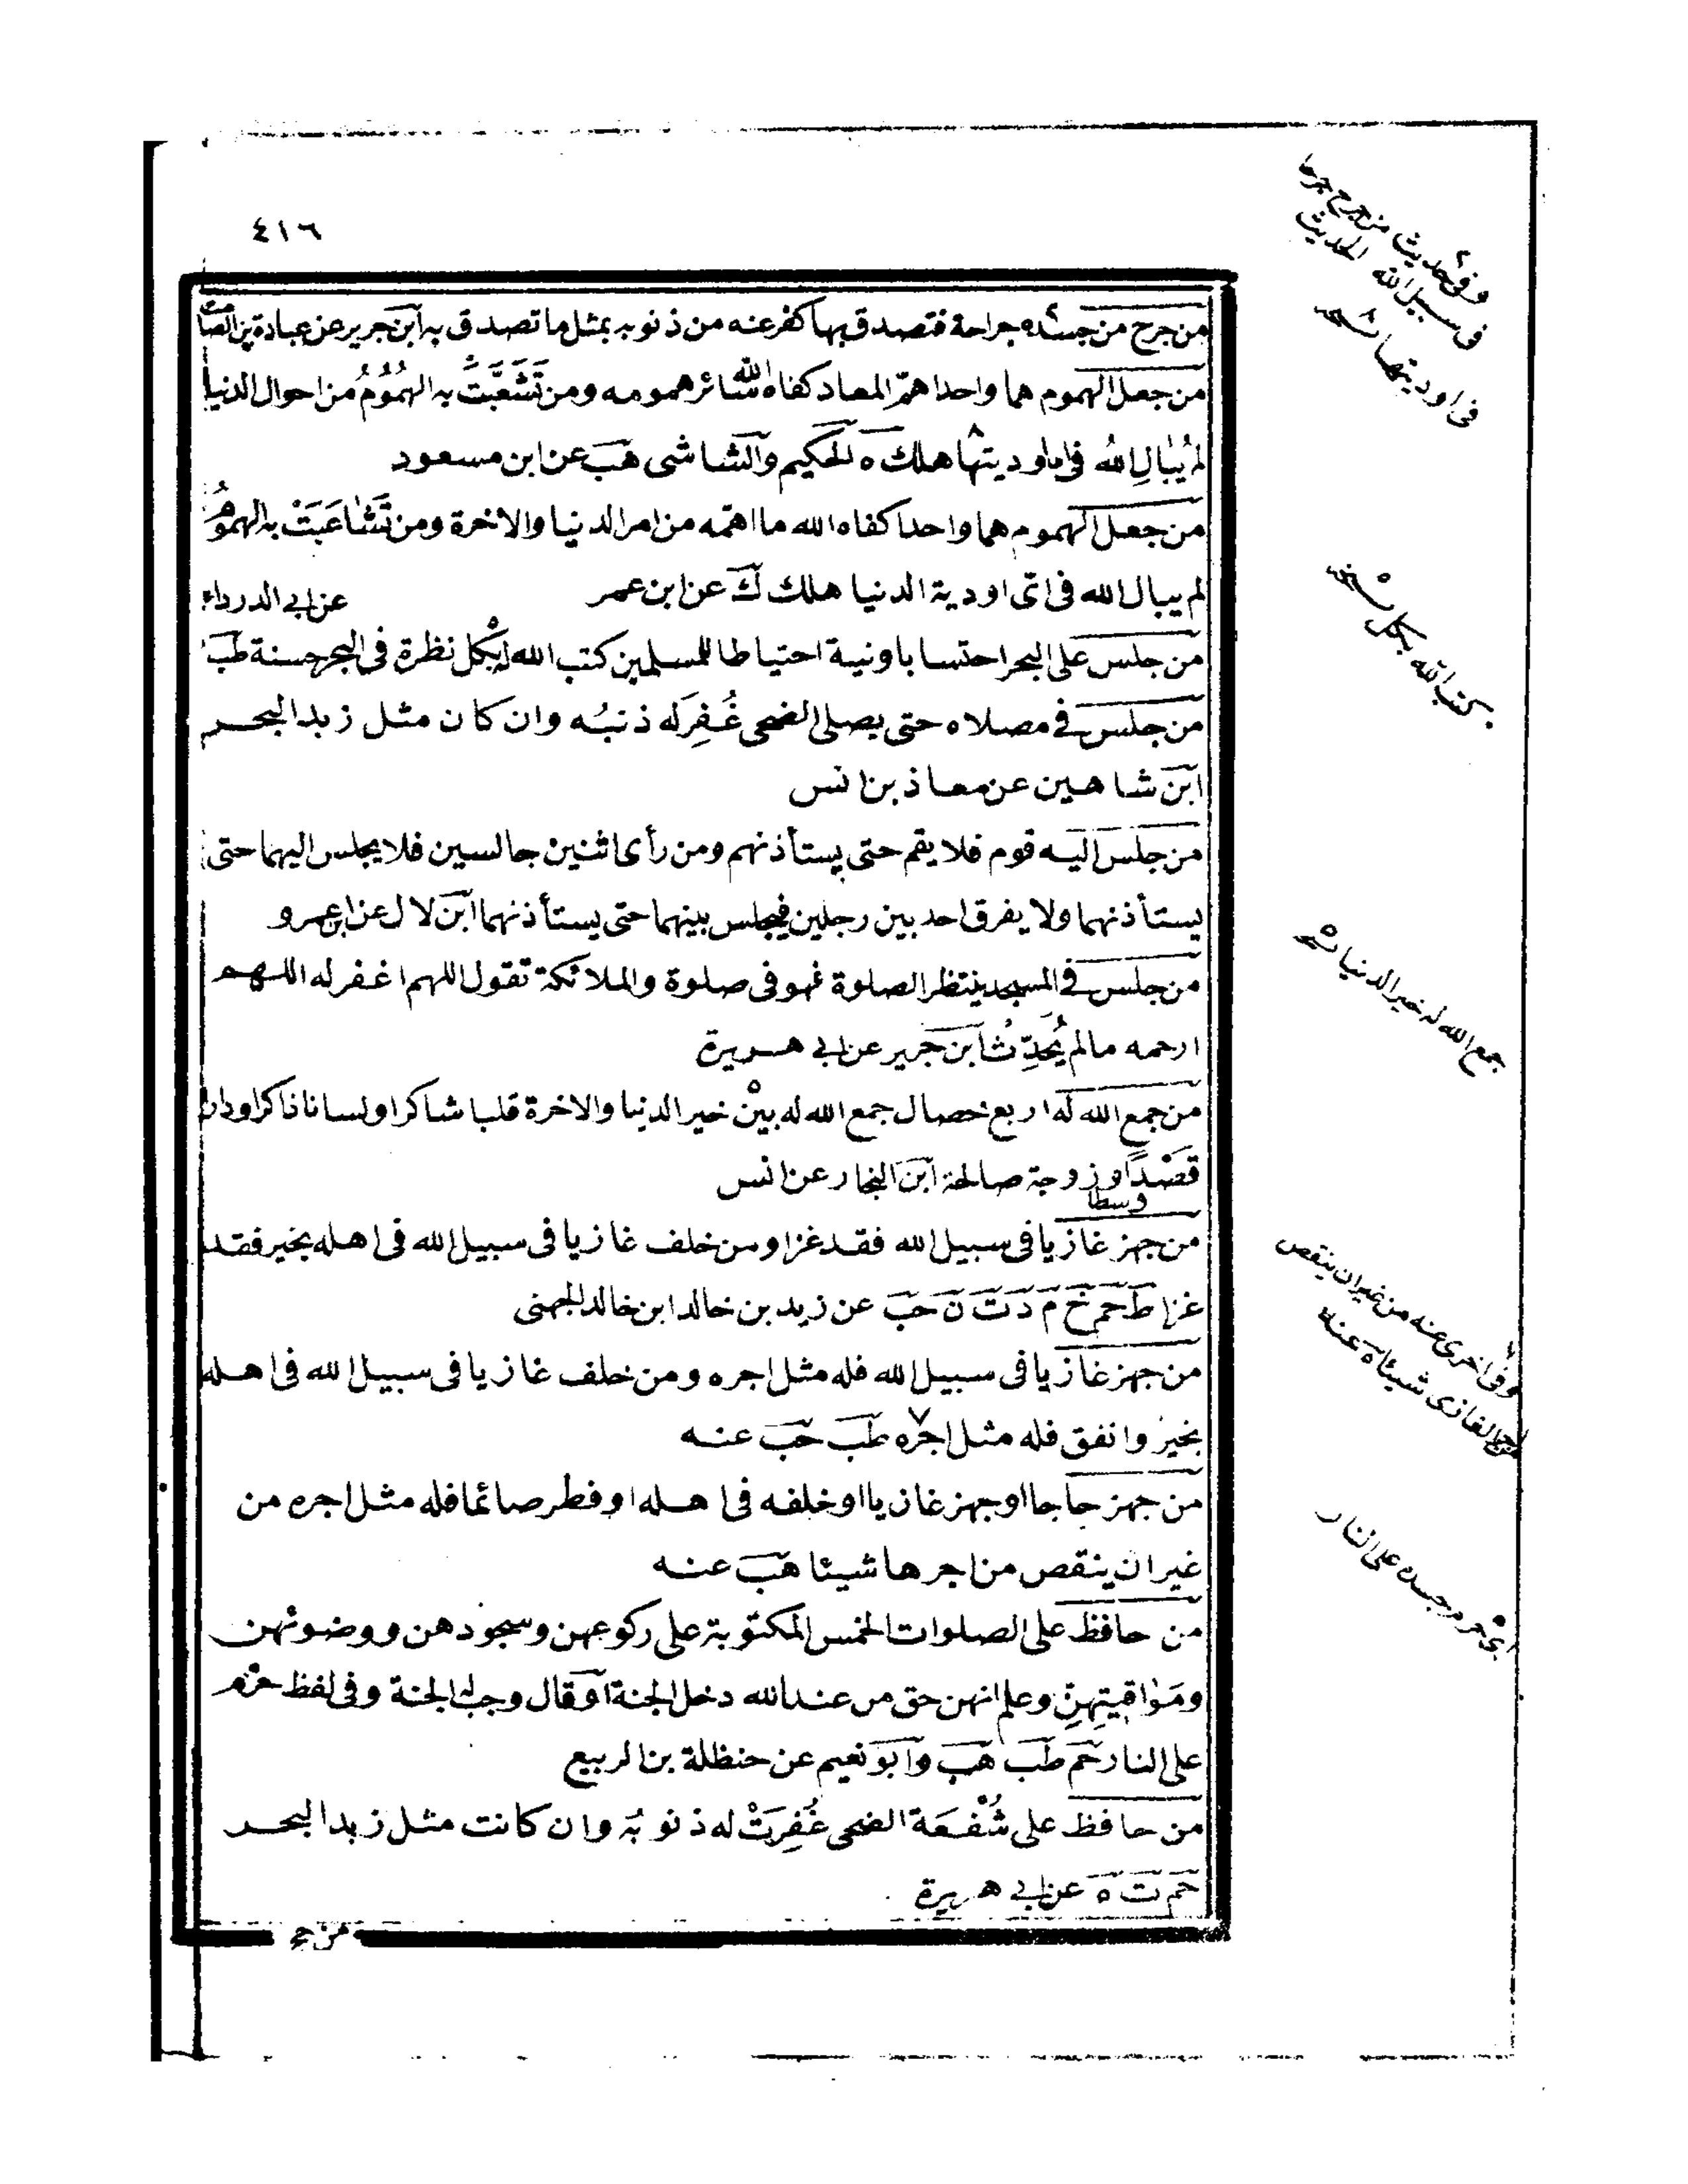 ٤١٦
من جرح من جسده جراحة فتصدق بها كفر عنه من ذنوبه بمثل ما تصدق به ابن جرير عن عبادة بن الصامت
من جعل الهموم هما واحدا همّ المعاد كفاه الله سائر همومه ومن تَشَعَّبَتْ به الهُمُومُ من احوال الدنيا
لم يُبَالِ اللهُ فى اى اوديتها هلك ه الحكيم والشاشى هب عن ابن مسعود
من جعل الهموم هما واحدا كفاه الله ما اهمّه من امر الدنيا والاخرة ومن تَشَاعَبَتْ به الهمومُ
لم يبال الله فى اىّ اودية الدنيا هلك ك عن ابن عمر
عن ابى الدرداء
من جلس على البحر احتسابا ونية احتياطا للمسلمين كتب الله له بكل نظرة فى البحر حسنة طب
من جلس فى مصلاه حتى يصلى الضحى غُفِرَ له ذنبُه وان كان مثل زبد البحر
ابن شاهين عن معاذ بن انس
من جلس اليه قوم فلا يقم حتى يستأذنهم ومن رأى اثنين جالسين فلا يجلس اليهما حتى
يستأذنهما ولا يفرق احد بين رجلين فيجلس بينهما حتى يستأذنهما ابن لال عن ابن عمرو
من جلس فى المسجد ينتظر الصلوة فهو فى صلوة والملائكة تقول اللهم اغفر له اللهم
ارحمه مالم يُحَدِّثُ ابن جرير عن ابى هريرة
من جمع الله له اربع خصال جمع الله له بين خير الدنيا والاخرة قلبا شاكرا ولسانا ذاكرا ودارا
قَصْدًا وزوجة صالحة ابن النجار عن انس
وسطا
من جهز غازيا فى سبيل الله فقد غزا ومن خلف غازيا فى سبيل الله فى اهله بخير فقد
غزا ط حم خ م د ت ن حب عن زيد بن خالد ابن خالد الجهنى
من جهز غازيا فى سبيل الله فله مثل اجره ومن خلف غازيا فى سبيل الله فى اهله
بخير وانفق فله مثل اجره طب حب عنه
من جهز حاجا او جهز غازيا او خلفه فى اهله او فطر صائما فله مثل اجره من
غير ان ينقص من اجرها شيئا هب عنه
من حافظ على الصلوات الخمس المكتوبة على ركوعهن وسجودهن ووضوئهن
ومَوَاقيتِهِنَّ وعلم انهن حق من عند الله دخل الجنة اوقال وجب له الجنة وفى لفظ حرم
على النار حم طب هب وابو نعيم عن حنظلة بن الربيع
من حافظ على شُفْعَة الضحى غُفِرَتْ له ذنوبُه وان كانت مثل زبد البحر
حم ت ه عن ابى هريرة
وفى حديث من جرح جرحا
فى سبيل الله الحديث
فى اوديتها
كتب الله بكل
جمع الله له خير الدنيا
وفى اخرى عنه من غير ان ينقص
من اجر الغازى شيئا ه عنه
حرم جسده على النار